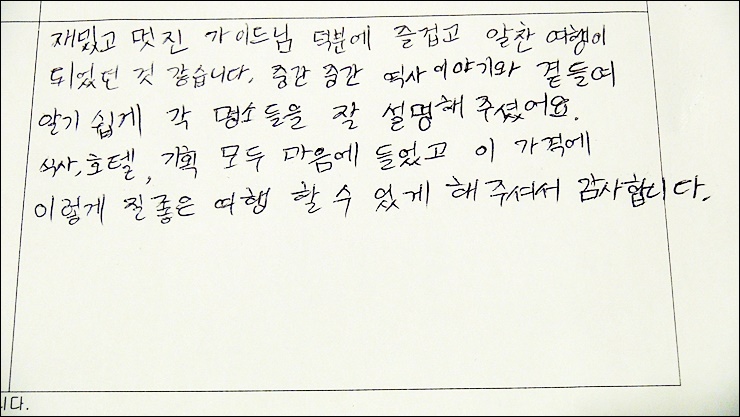 재밌고 멋진 가이드님 덕분에 즐겁고 알찬 여행이
되었던 것 같습니다. 중간 중간 역사 이야기와 곁들여
알기 쉽게 각 명소들을 잘 설명해 주셨어요.
식사, 호텔, 기획 모두 마음에 들었고 이 가격에
이렇게 질좋은 여행 할 수 있게 해 주셔서 감사합니다.
니다.